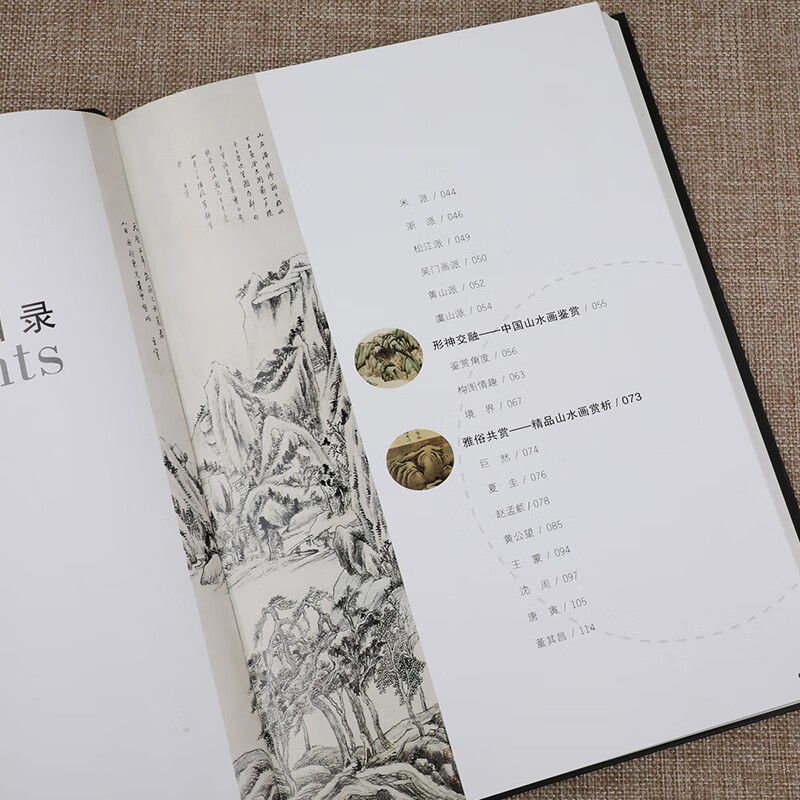 录
nts
米 派 / 044
浙 派 / 046
松江派 / 049
吴门画派 / 050
黄山派 / 052
虞山派 / 054
形神交融——中国山水画鉴赏 / 055
鉴赏角度 / 056
构图情趣 / 063
境 界 / 067
雅俗共赏——精品山水画赏析 / 073
巨 然 / 074
夏 圭 / 076
赵孟頫 / 078
黄公望 / 085
王 蒙 / 094
沈 周 / 097
唐 寅 / 105
董其昌 / 114